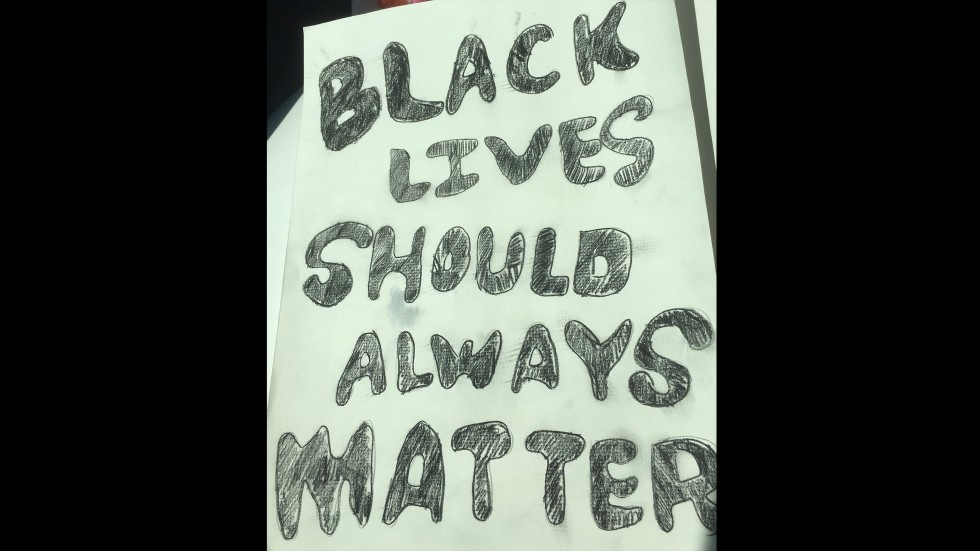 BLACK
LIVES
SHOULD
ALWAYS
MATTER